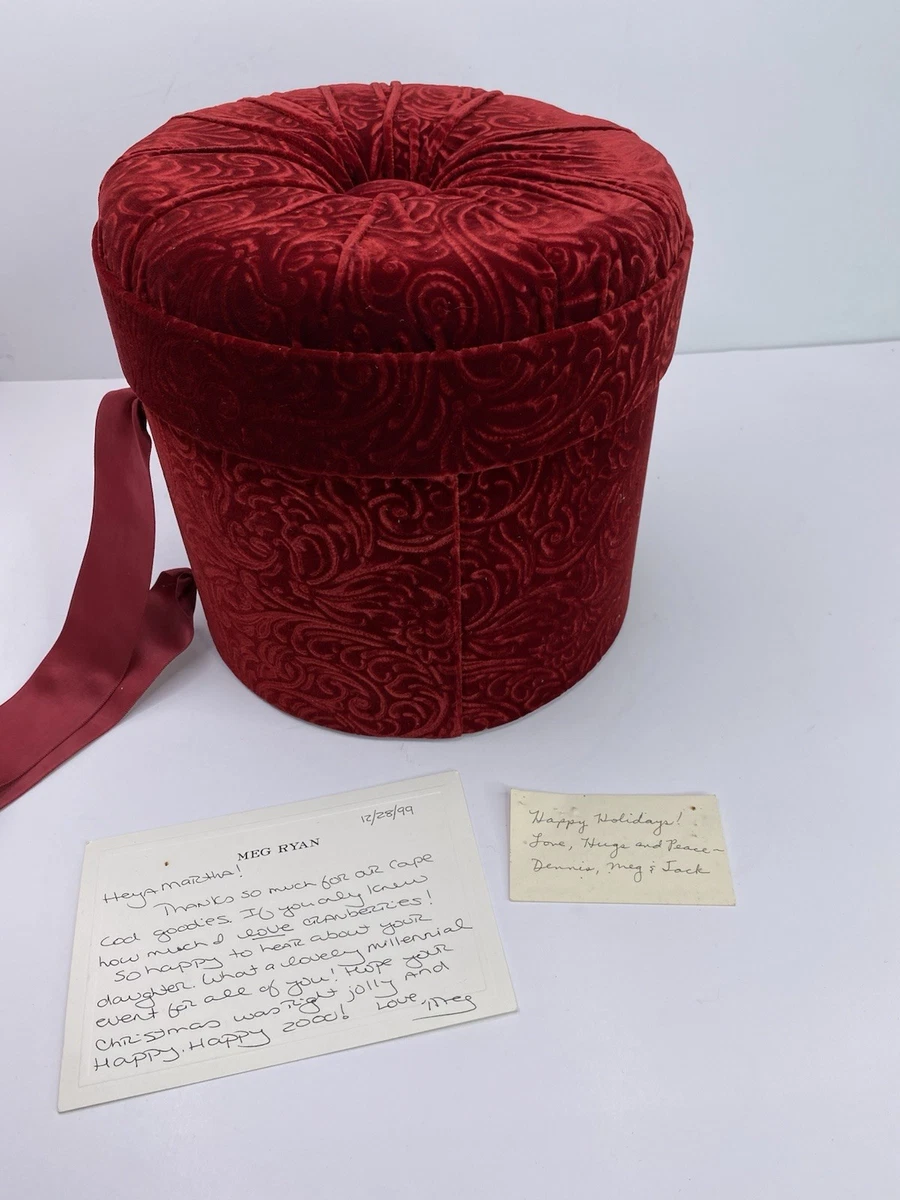 12/28/99
MEG RYAN
Heya Martha!
Thanks so much for our Cape
Cod goodies. If you only knew
how much I love cranberries!
So happy to hear about your
daughter. What a lovely millennial
event for all of you! Hope your
Christmas was right jolly and
Happy. Happy 2000! Love, Meg
Happy Holidays!
Love, Hugs and Peace~
Dennis, Meg & Jack